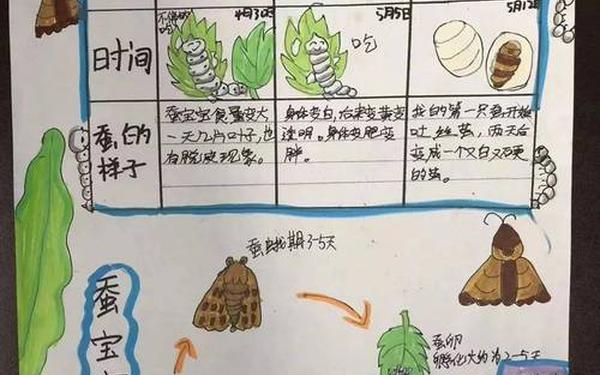 不停的吃 4月30日
5月5日
5月12日
时间
吃
蚕的样子
蚕宝宝食量变大
一天几片叶子,也
有脱皮现象。
身体变白,后来变黄变
透明。身体变肥变
胖。
我的第一只蚕开始
吐丝茧,两天后
变成一个又白又硬
的茧。
蚕蛾期3-5天
蚕宝
蚕卵
孵化大约为2-5天